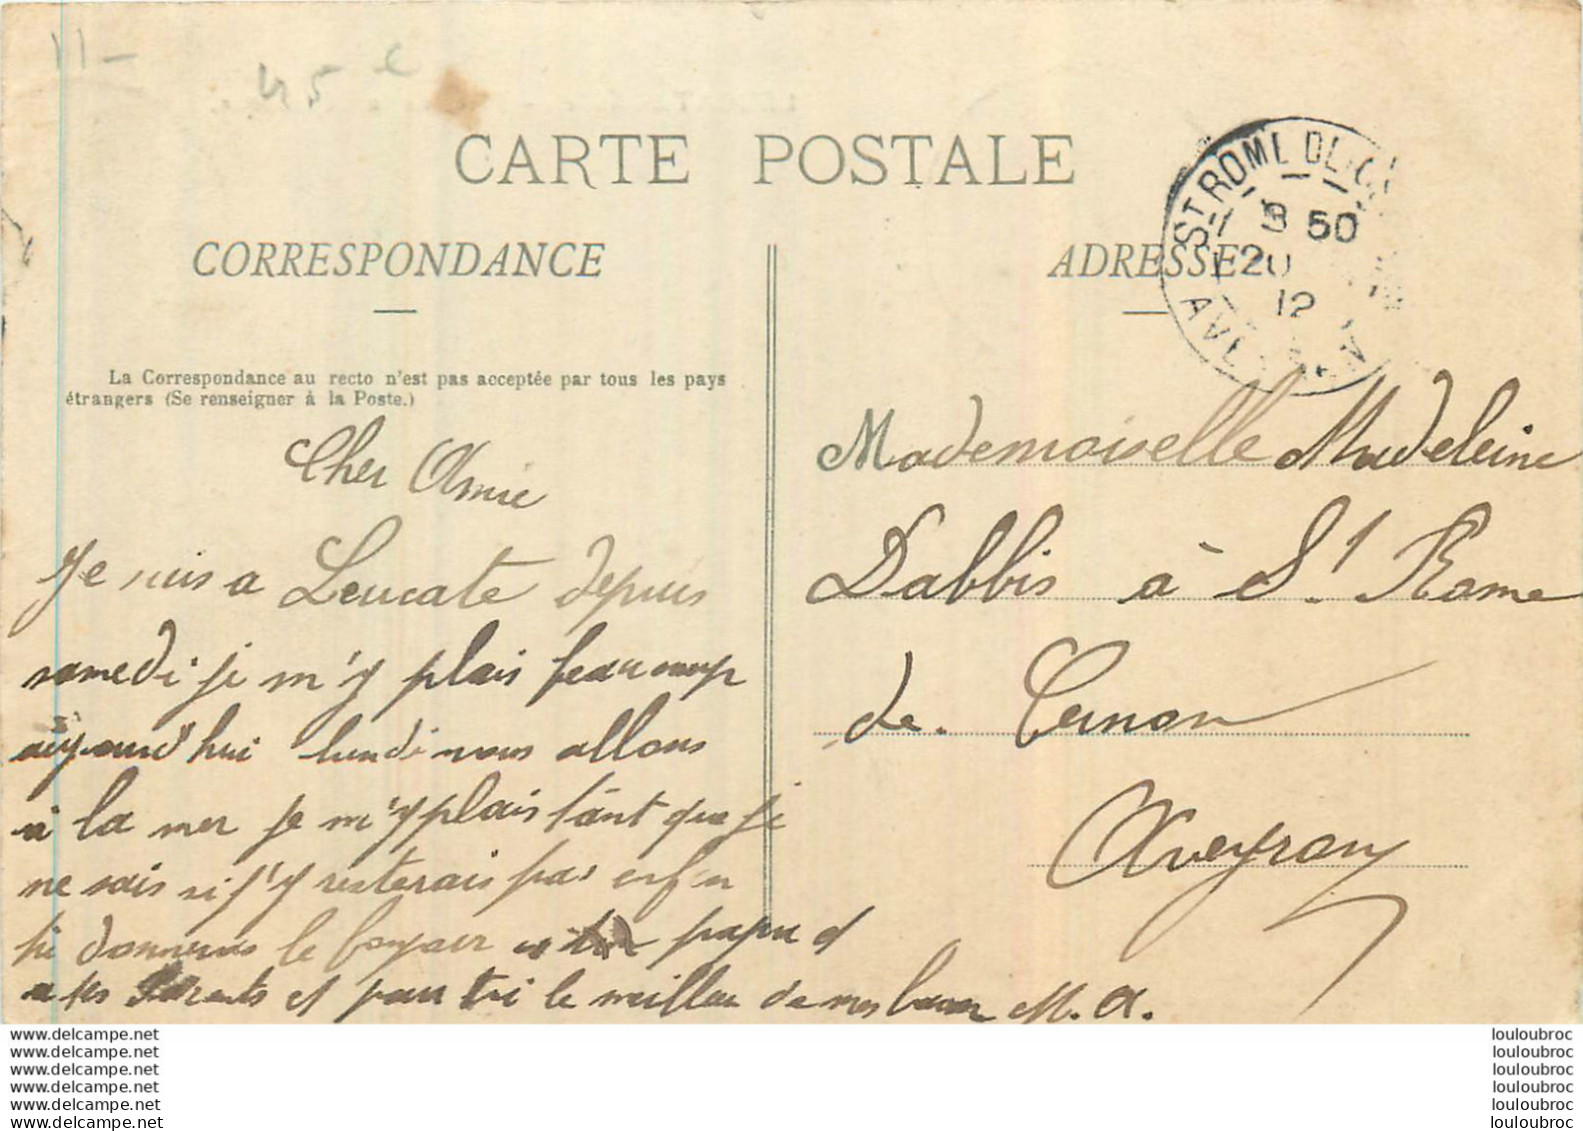 11-
45 e
CARTE POSTALE
CORRESPONDANCE
ADRESSE
La Correspondance au recto n'est pas acceptée par tous les pays
étrangers (Se renseigner à la Poste.)
Cher Amie
Je suis a Leucate depuis
samedi je m'y plais beaucoup
aujourd'hui lundi nous allons
à la mer je m'y plais tant que je
ne sais si j'y resterais pas enfin
tu donneras le bonjour papa et
a tes parents et pour toi le meilleur de mes M. A.
ST ROME DE
8 50
20
12
AVEYRON
Mademoiselle Madeleine
Dabbis à St. Rome
de. Cernon
Aveyron
www.delcampe.net
www.delcampe.net
www.delcampe.net
www.delcampe.net
www.delcampe.net
www.delcampe.net
louloubroc
louloubroc
louloubroc
louloubroc
louloubroc
louloubroc